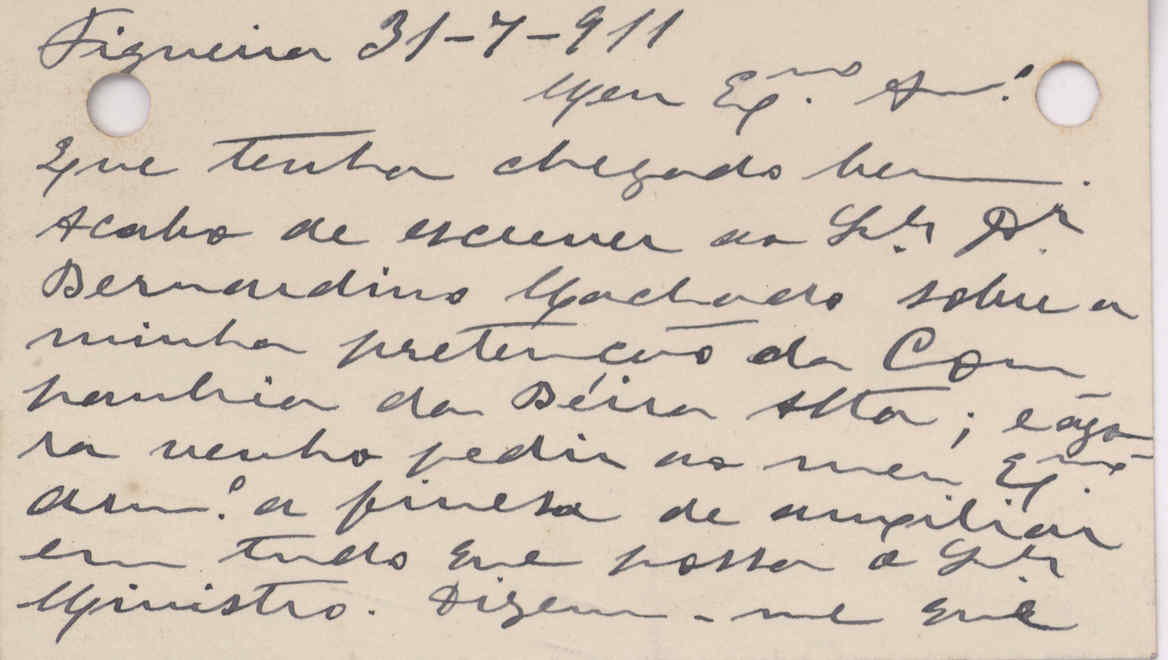 Figueira 31-7-911
Meu Exmo. Am.o
Que tenha chegado bem.
Acabo de escrever ao Snr. Dr.
Bernardino Machado sobre a
minha pretenção da Com
panhia da Béira Alta; e ago
ra venho pedir ao meu Exmo.
am.o a finesa de auxiliar
em tudo que possa o Snr.
Ministro. Dizem-me que